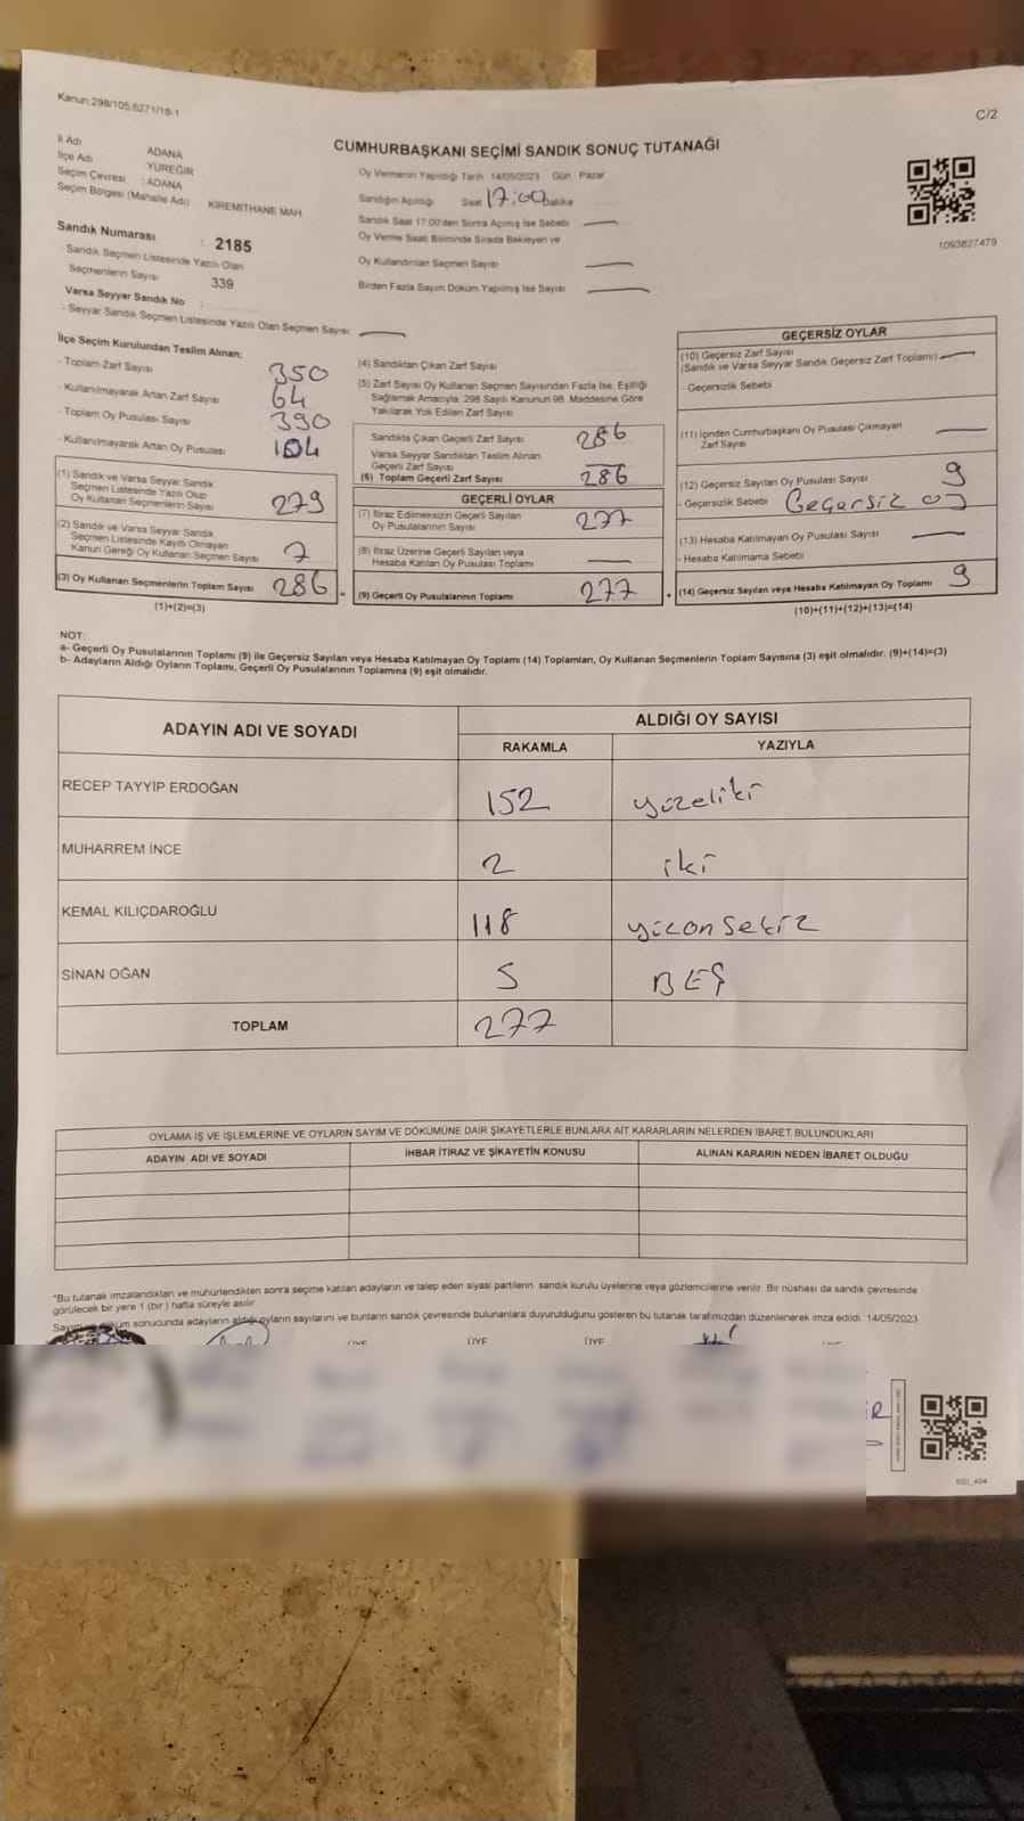 Kanun: 298/105,6271/18-1
C/2
CUMHURBAŞKANI SEÇİMİ SANDIK SONUÇ TUTANAĞI
İl Adı ADANA
İlçe Adı YÜREĞİR
Seçim Çevresi : ADANA
Seçim Bölgesi (Mahalle Adı) KİREMİTHANE MAH.
Sandık Numarası : 2185
Sandık Seçmen Listesinde Yazılı Olan
Seçmenlerin Sayısı 339
Varsa Seyyar Sandık No
- Seyyar Sandık Seçmen Listesinde Yazılı Olan Seçmen Sayısı
Oy Vermenin Yapıldığı Tarih 14/05/2023 Gün : Pazar
Sandığın Açıldığı Saat 17:00 Dakika
Sandık Saat 17:00'den Sonra Açılmış İse Sebebi
Oy Verme Saati Bitiminde Sırada Bekleyen ve
Oy Kullandırılan Seçmen Sayısı
Birden Fazla Sayım Döküm Yapılmış İse Sayısı
1093827479
İlçe Seçim Kurulundan Teslim Alınan;
- Toplam Zarf Sayısı 350
- Kullanılmayarak Artan Zarf Sayısı 64
- Toplam Oy Pusulası Sayısı 390
- Kullanılmayarak Artan Oy Pusulası 104
(1) Sandık ve Varsa Seyyar Sandık
Seçmen Listesinde Yazılı Olup
Oy Kullanan Seçmenlerin Sayısı 279
(2) Sandık ve Varsa Seyyar Sandık
Seçmen Listesinde Kayıtlı Olmayan
Kanun Gereği Oy Kullanan Seçmen Sayısı 7
(3) Oy Kullanan Seçmenlerin Toplam Sayısı 286
(1)+(2)=(3)
(4) Sandıktan Çıkan Zarf Sayısı
(5) Zarf Sayısı Oy Kullanan Seçmen Sayısından Fazla İse, Eşitliği
Sağlamak Amacıyla, 298 Sayılı Kanunun 98. Maddesine Göre
Yakılarak Yok Edilen Zarf Sayısı
Sandıkta Çıkan Geçerli Zarf Sayısı 286
Varsa Seyyar Sandıktan Teslim Alınan
Geçerli Zarf Sayısı
(6) Toplam Geçerli Zarf Sayısı 286
GEÇERLİ OYLAR
(7) İtiraz Edilmeksizin Geçerli Sayılan
Oy Pusulalarının Sayısı 277
(8) İtiraz Üzerine Geçerli Sayılan veya
Hesaba Katılan Oy Pusulası Toplamı
(9) Geçerli Oy Pusulalarının Toplamı 277
GEÇERSİZ OYLAR
(10) Geçersiz Zarf Sayısı
(Sandık ve Varsa Seyyar Sandık Geçersiz Zarf Toplamı)
- Geçersizlik Sebebi
(11) İçinden Cumhurbaşkanı Oy Pusulası Çıkmayan
Zarf Sayısı
(12) Geçersiz Sayılan Oy Pusulası Sayısı 9
- Geçersizlik Sebebi Geçersiz oy
(13) Hesaba Katılmayan Oy Pusulası Sayısı
- Hesaba Katılmama Sebebi
(14) Geçersiz Sayılan veya Hesaba Katılmayan Oy Toplamı 9
(10)+(11)+(12)+(13)=(14)
NOT:
a- Geçerli Oy Pusulalarının Toplamı (9) ile Geçersiz Sayılan veya Hesaba Katılmayan Oy Toplamı (14) Toplamları, Oy Kullanan Seçmenlerin Toplam Sayısına (3) eşit olmalıdır. (9)+(14)=(3)
b- Adayların Aldığı Oyların Toplamı, Geçerli Oy Pusulalarının Toplamına (9) eşit olmalıdır.
ADAYIN ADI VE SOYADI ALDIĞI OY SAYISI
RAKAMLA YAZIYLA
RECEP TAYYİP ERDOĞAN 152 yüzeliki
MUHARREM İNCE 2 iki
KEMAL KILIÇDAROĞLU 118 yüzonsekiz
SİNAN OĞAN 5 BEŞ
TOPLAM 277
OYLAMA İŞ VE İŞLEMLERİNE VE OYLARIN SAYIM VE DÖKÜMÜNE DAİR ŞİKAYETLERLE BUNLARA AİT KARARLARIN NELERDEN İBARET BULUNDUKLARI
ADAYIN ADI VE SOYADI İHBAR İTİRAZ VE ŞİKAYETİN KONUSU ALINAN KARARIN NEDEN İBARET OLDUĞU
*Bu tutanak imzalandıktan ve mühürlendikten sonra seçime katılan adayların ve talep eden siyasi partilerin sandık kurulu üyelerine veya gözlemcilerine verilir. Bir nüshası da sandık çevresinde
görülecek bir yere 1 (bir) hafta süreyle asılır.
Sayım ve döküm sonucunda adayların aldığı oyların sayılarını ve bunların sandık çevresinde bulunanlara duyurulduğunu gösteren bu tutanak tarafımızdan düzenlenerek imza edildi. 14/05/2023
ÜYE ÜYE ÜYE